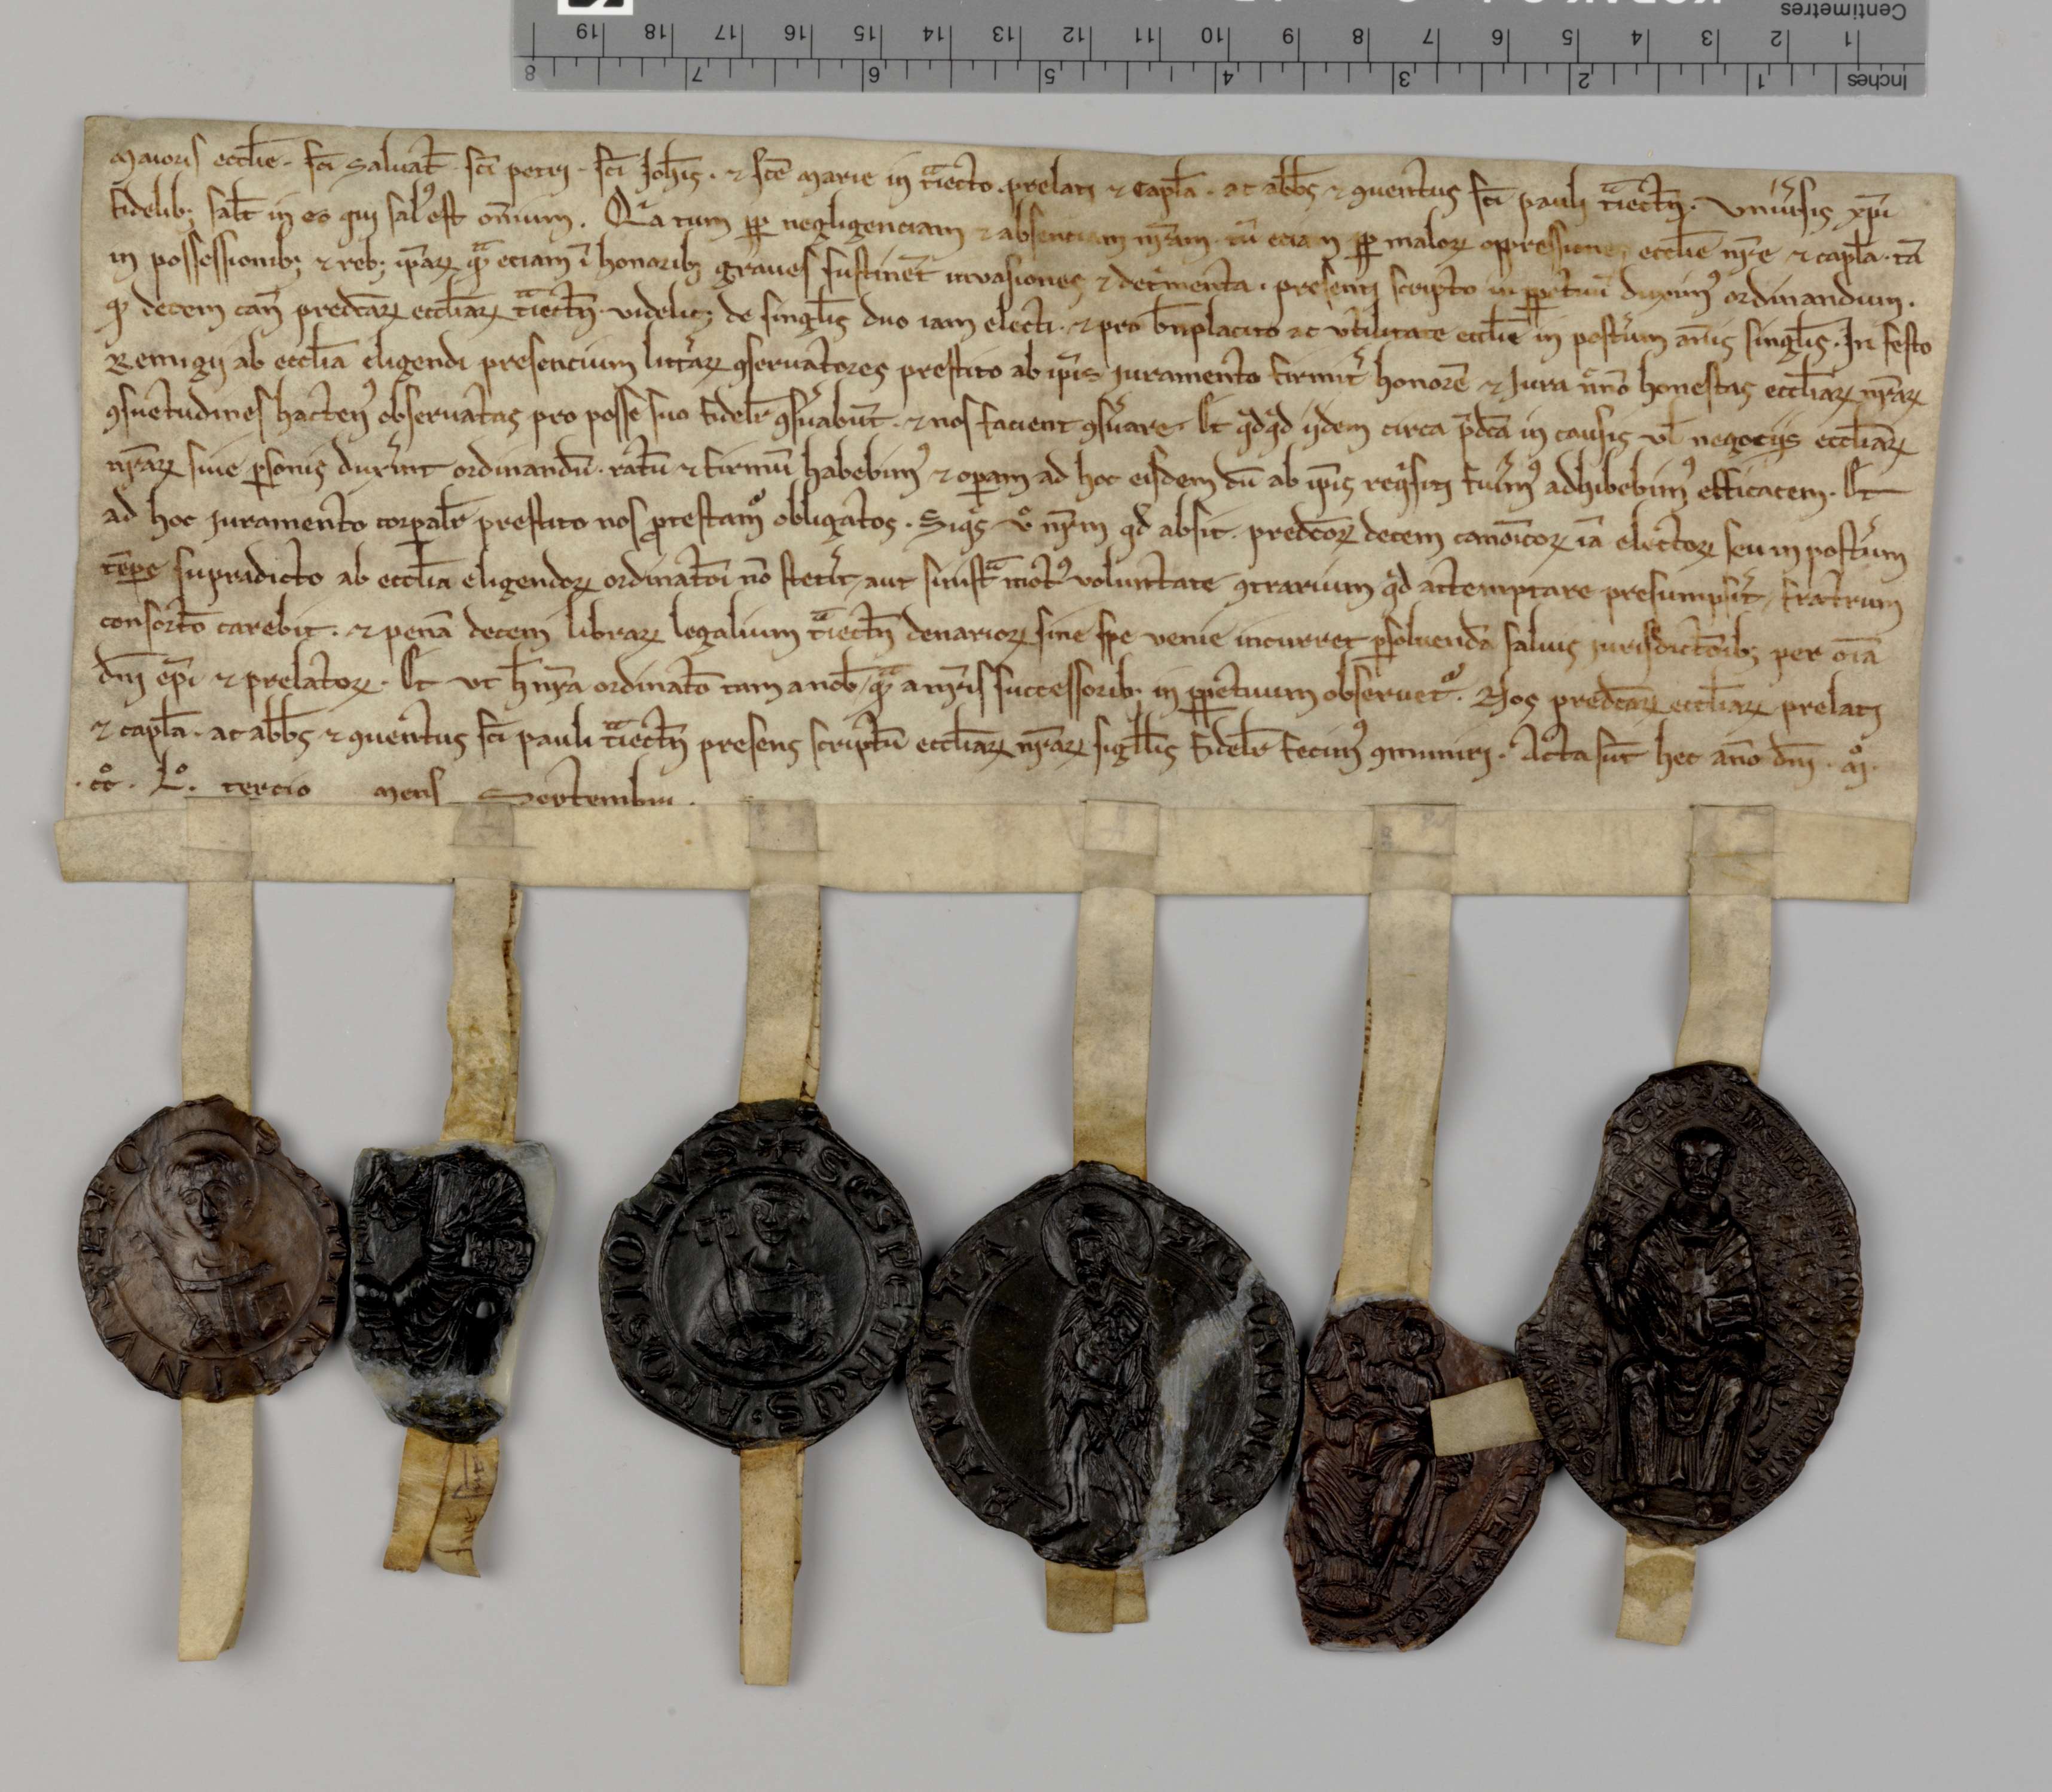 Centimetres
1 2 3 4 5 6 7 8 9 10 11 12 13 14 15 16 17 18 19
Inches 1 2 3 4 5 6 7 8
Maioris eccłie · sc̄i Saluat̄ · sc̄i petri · sc̄i Joh̄is · ⁊ sc̄e Marie in t̄iecto prelati ⁊ Capłа · ac abb̄s ⁊ ꝯuentus sc̄i pauli t̄iectn̄ · Vniu͛sis xp̄i
fidelib; salt̄ in eo qui sal᷒ est om̄ium . Q̇a tum ꝓp negligenciam ⁊ absenciam nr̄am · tū eciam ꝓp malorꝝ oppressionē eccłie nr̄e ⁊ capłа · tā
in possessionib; ⁊ reb; ip̄arꝝ qᵃ̄ eciam ī honorib; graues sustinēt inuasiones ⁊ det͛menta · presenti scripto in ꝑpetuū duxim᷒ ordinandum .
ꝙ decem can̄ predc̄arꝝ eccłiarꝝ t̄iectn̄ · videlic; de singłis duo iam electi · ⁊ pro b̄nplacito ac vtilitate eccłie in post͛um an̄is singłis · In festo
Remigij ab eccłia eligendi presencium litt͛arꝝ ꝯseruatores prestito ab ip̄is juramento firmit͛ honorē ⁊ Jura n̄no honestas eccłiarꝝ nr̄arꝝ
ꝯsuetudines hacten᷒ obseruatas pro posse suo fidelr̄ ꝯs͛uabūt · ⁊ nos facient ꝯs͛uare · Et qͥdqͥd ijdem circa p̄dc̄a in causis vł negocijs eccłiarꝝ
nr̄arꝝ siue ꝑsonis dux͛int ordinandū · ratū ⁊ firmū habebim᷒ ⁊ oꝑam ad hoc eisdem dū ab ip̄is reqͥsiti fu͛im᷒ adhibebim᷒ efficacem · Et
ad hoc juramento corꝑalr̄ prestito nos ꝓtestamᷣ obligatos . Siqͥs v̊ nr̄m qd̄ absit · predc̄orꝝ decem canoīcorꝝ iā electorꝝ seu in post͛um
tēꝑe supradicto ab eccłia eligendorꝝ ordinatōi nō stet͛it aut sinistᵃ mot᷒ voluntate ꝯtrarium qͥd attemptare presumps͛it / fratrum
consorcō carebit · ⁊ penā decem librarꝝ legalium t̄iectn̄ denariorꝝ sine spe venie incurret ꝑsoluendā saluis jurisdictōib; per oīa
dn̄i ep̄i ⁊ prelatorꝝ · Et vt h̄ nr̄a ordinatō tam a nob̄ / qᵃ̄ a nr̄is successorib; in ꝑpetuum obseruetᷣ . Nos predc̄arꝝ eccłiarꝝ prelati
⁊ capłа · ac abb̄s ⁊ ꝯuentus sc̄i pauli t̄iectn̄ presens scriptū eccłiarꝝ nr̄arꝝ sigiłłis fidelr̄ fecim᷒ ꝯmuniri · Acta sūt hec an̄o dn̄i · M̊ ·
· cc̊ · L̊ · tercio mens Septembri .
S MARTINVS EPC
SCS PETRVS · APOSTOLVS
BAPTISTA